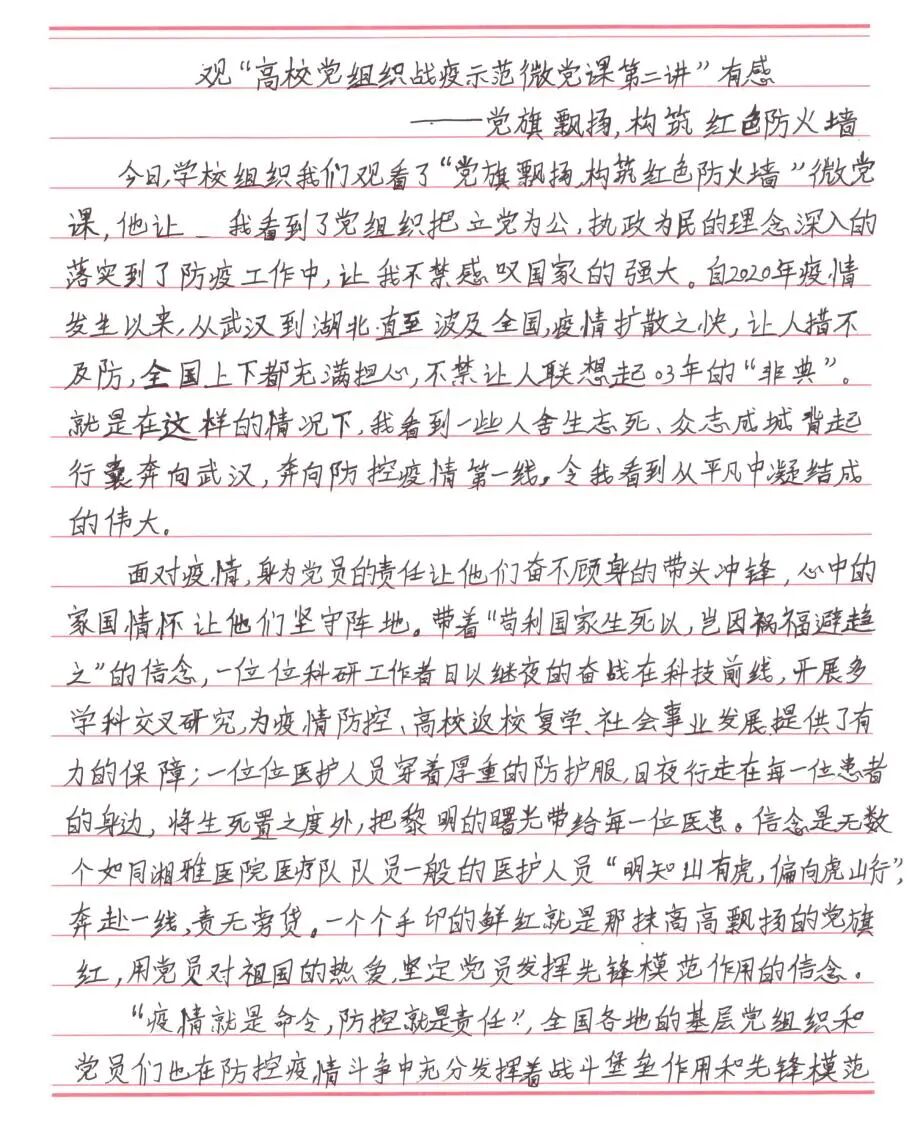 观“高校党组织战疫示范微党课第二讲”有感
——党旗飘扬,构筑红色防火墙
今日,学校组织我们观看了“党旗飘扬,构筑红色防火墙”微党
课,他让_我看到了党组织把立党为公,执政为民的理念深入的
落实到了防疫工作中,让我不禁感叹国家的强大。自2020年疫情
发生以来,从武汉到湖北直至波及全国,疫情扩散之快,让人措不
及防,全国上下都充满担心,不禁让人联想起03年的“非典”。
就是在这样的情况下,我看到一些人舍生忘死、众志成城背起
行囊奔向武汉,奔向防控疫情第一线。令我看到从平凡中凝结成
的伟大。
面对疫情,身为党员的责任让他们奋不顾身的带头冲锋,心中的
家国情怀让他们坚守阵地。带着“苟利国家生死以,岂因祸福避趋
之”的信念,一位位科研工作者日以继夜的奋战在科技前线,开展多
学科交叉研究,为疫情防控、高校返校复学、社会事业发展提供了有
力的保障;一位位医护人员穿着厚重的防护服,日夜行走在每一位患者
的身边,将生死置之度外,把黎明的曙光带给每一位医患。信念是无数
个如同湘雅医院医疗队队员一般的医护人员“明知山有虎,偏向虎山行”,
奔赴一线,责无旁贷。一个个手印的鲜红就是那抹高高飘扬的党旗
红,用党员对祖国的热爱,坚定党员发挥先锋模范作用的信念。
“疫情就是命令,防控就是责任”,全国各地的基层党组织和
党员们也在防控疫情斗争中充分发挥着战斗堡垒作用和先锋模范